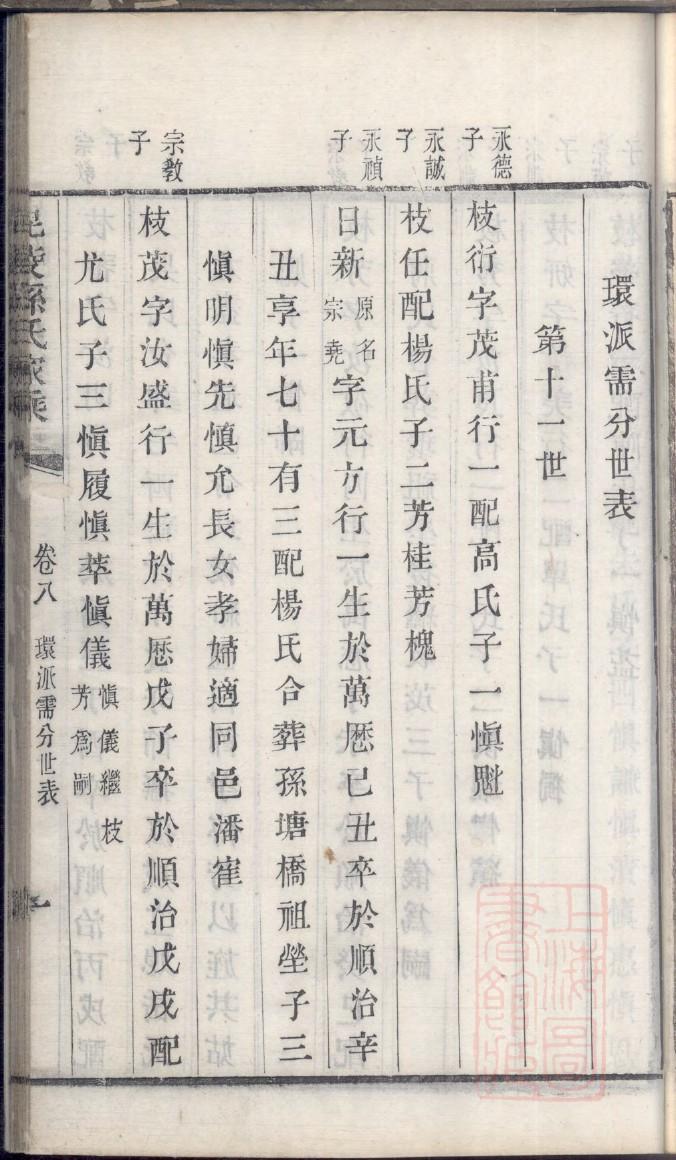 環派需分世表
第十一世
永德子
枝衍字茂甫行一配高氏子一愼魁
永誠子
枝任配楊氏子二芳桂芳槐
永禎子
日新原名宗堯字元方行一生於萬厯已丑卒於順治辛
丑享年七十有三配楊氏合葬孫塘橋祖塋子三
愼明愼先慎允長女孝婦適同邑潘寉
宗教子
枝茂字汝盛行一生於萬厯戊子卒於順治戊戌配
尤氏子三愼履愼萃愼儀愼儀繼枝芳爲嗣
毘陵孫氏家乘 卷八 環派需分世表 一
上海圖書館藏